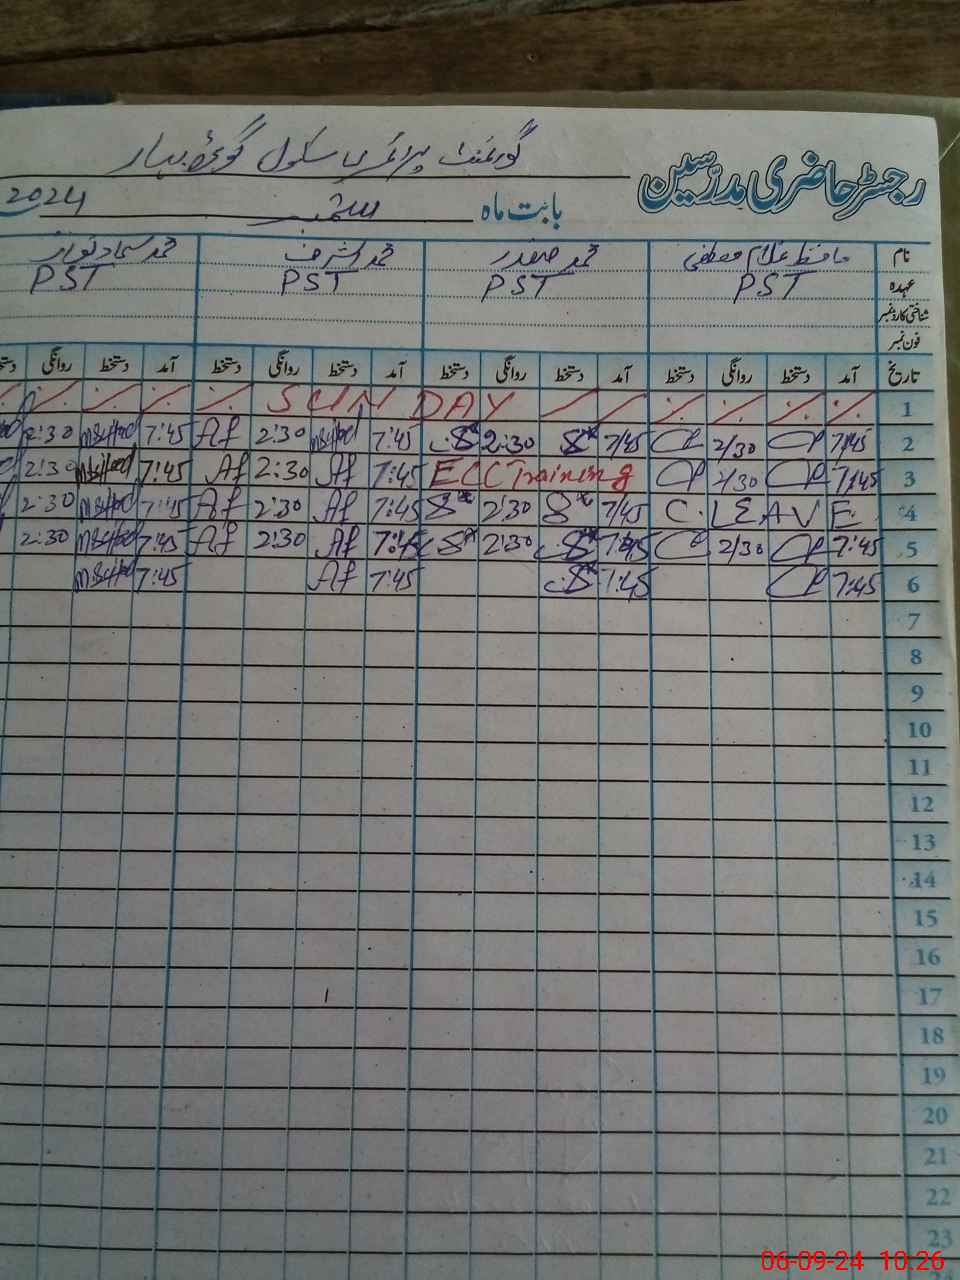 رجسٹر حاضری مدرسین
گورنمنٹ پرائمری سکول
بابت ماہ ستمبر 2024
نام حافظ غلام مصطفی محمد صفدر محمد اشرف محمد سجاد نواز
عہدہ PST PST PST PST
شناختی کارڈ نمبر
فون نمبر
تاریخ آمد دستخط روانگی دستخط آمد دستخط روانگی دستخط آمد دستخط روانگی دستخط آمد دستخط روانگی دستخط
1 SUNDAY
2 7/45 2/30 7/45 2:30 7:45 2:30 Af 7:45 2:30
3 7:45 2/30 ECC Training 7:45 Af 2:30 Af 7:45 2:30
4 C.LEAVE 7/45 2:30 7:45 Af 2:30 Af 7:45 2:30
5 7:45 2/30 7:45 2:30 7:45 Af 2:30 Af 7:45 2:30
6 7:45 7:45 7:45 Af 7:45
7
8
9
10
11
12
13
14
15
16
17
18
19
20
21
22
23
06-09-24 10:26